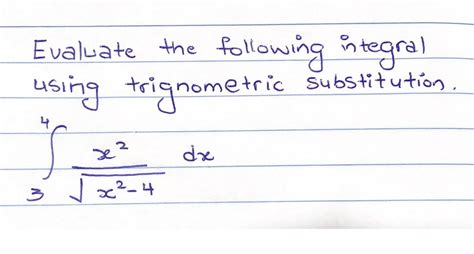 Evaluate the following integral
using trignometric substitution.
4
∫ x² / √(x²-4) dx
3